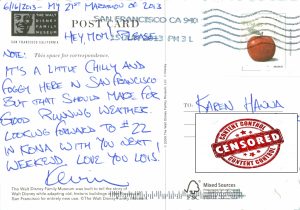 6/16/2013 - MY 21ST MARATHON OF 2013
SAN FRANCISCO CA 940
THE WALT
DISNEY
FAMILY
MUSEUM
POST CARD
SAN FRANCISCO, CALIFORNIA
HEY MOM! PLEASE
PM 2 L
NOTE:
This space for correspondence.
IT'S A LITTLE CHILLY AND
FOGGY HERE IN SAN FRANCISCO
BUT THAT SHOULD MAKE FOR
GOOD RUNNING WEATHER
LOOKING FORWARD TO #22
IN KONA WITH YOU NEXT
WEEKEND. LOVE YOU LOTS.
Kevin
TO:
KAREN HANNA
CONTENT CONTROL
CENSORED
CONTENT CONTROL
The Walt Disney Family Museum was built to tell the story of
Walt Disney while adapting old, historic buildings at
San Francisco for entirely new
Mixed Sources